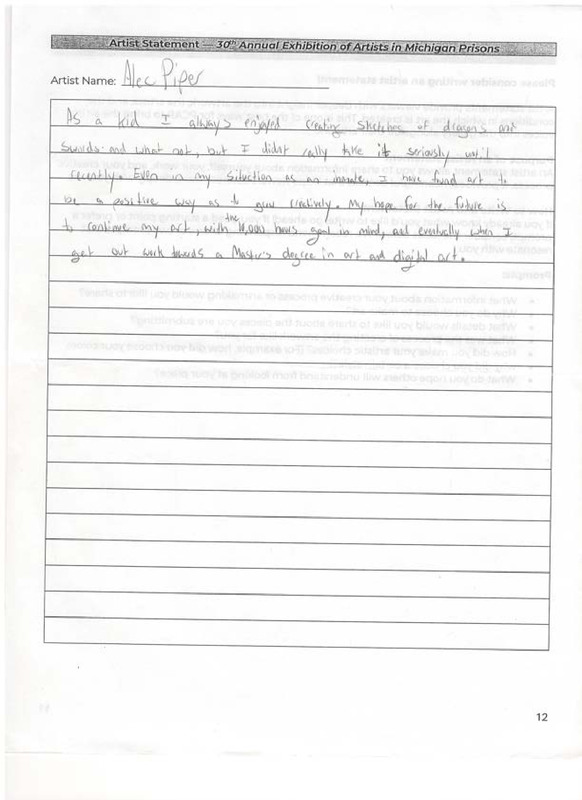 Artist Statement — 30th Annual Exhibition of Artists in Michigan Prisons
Artist Name: Alec Piper
As a kid I always enjoyed creating sketches of dragons and
swords and what not, but I didnt really take it seriously until
recently. Even in my situction as an inmate, I have fund art to
be a positive way as to grow creatively. My hope for the future is
to continue my art, with the 10,000 hours goal in mind, and eventually when I
get out work towards a Master's degree in art and digital art.
12